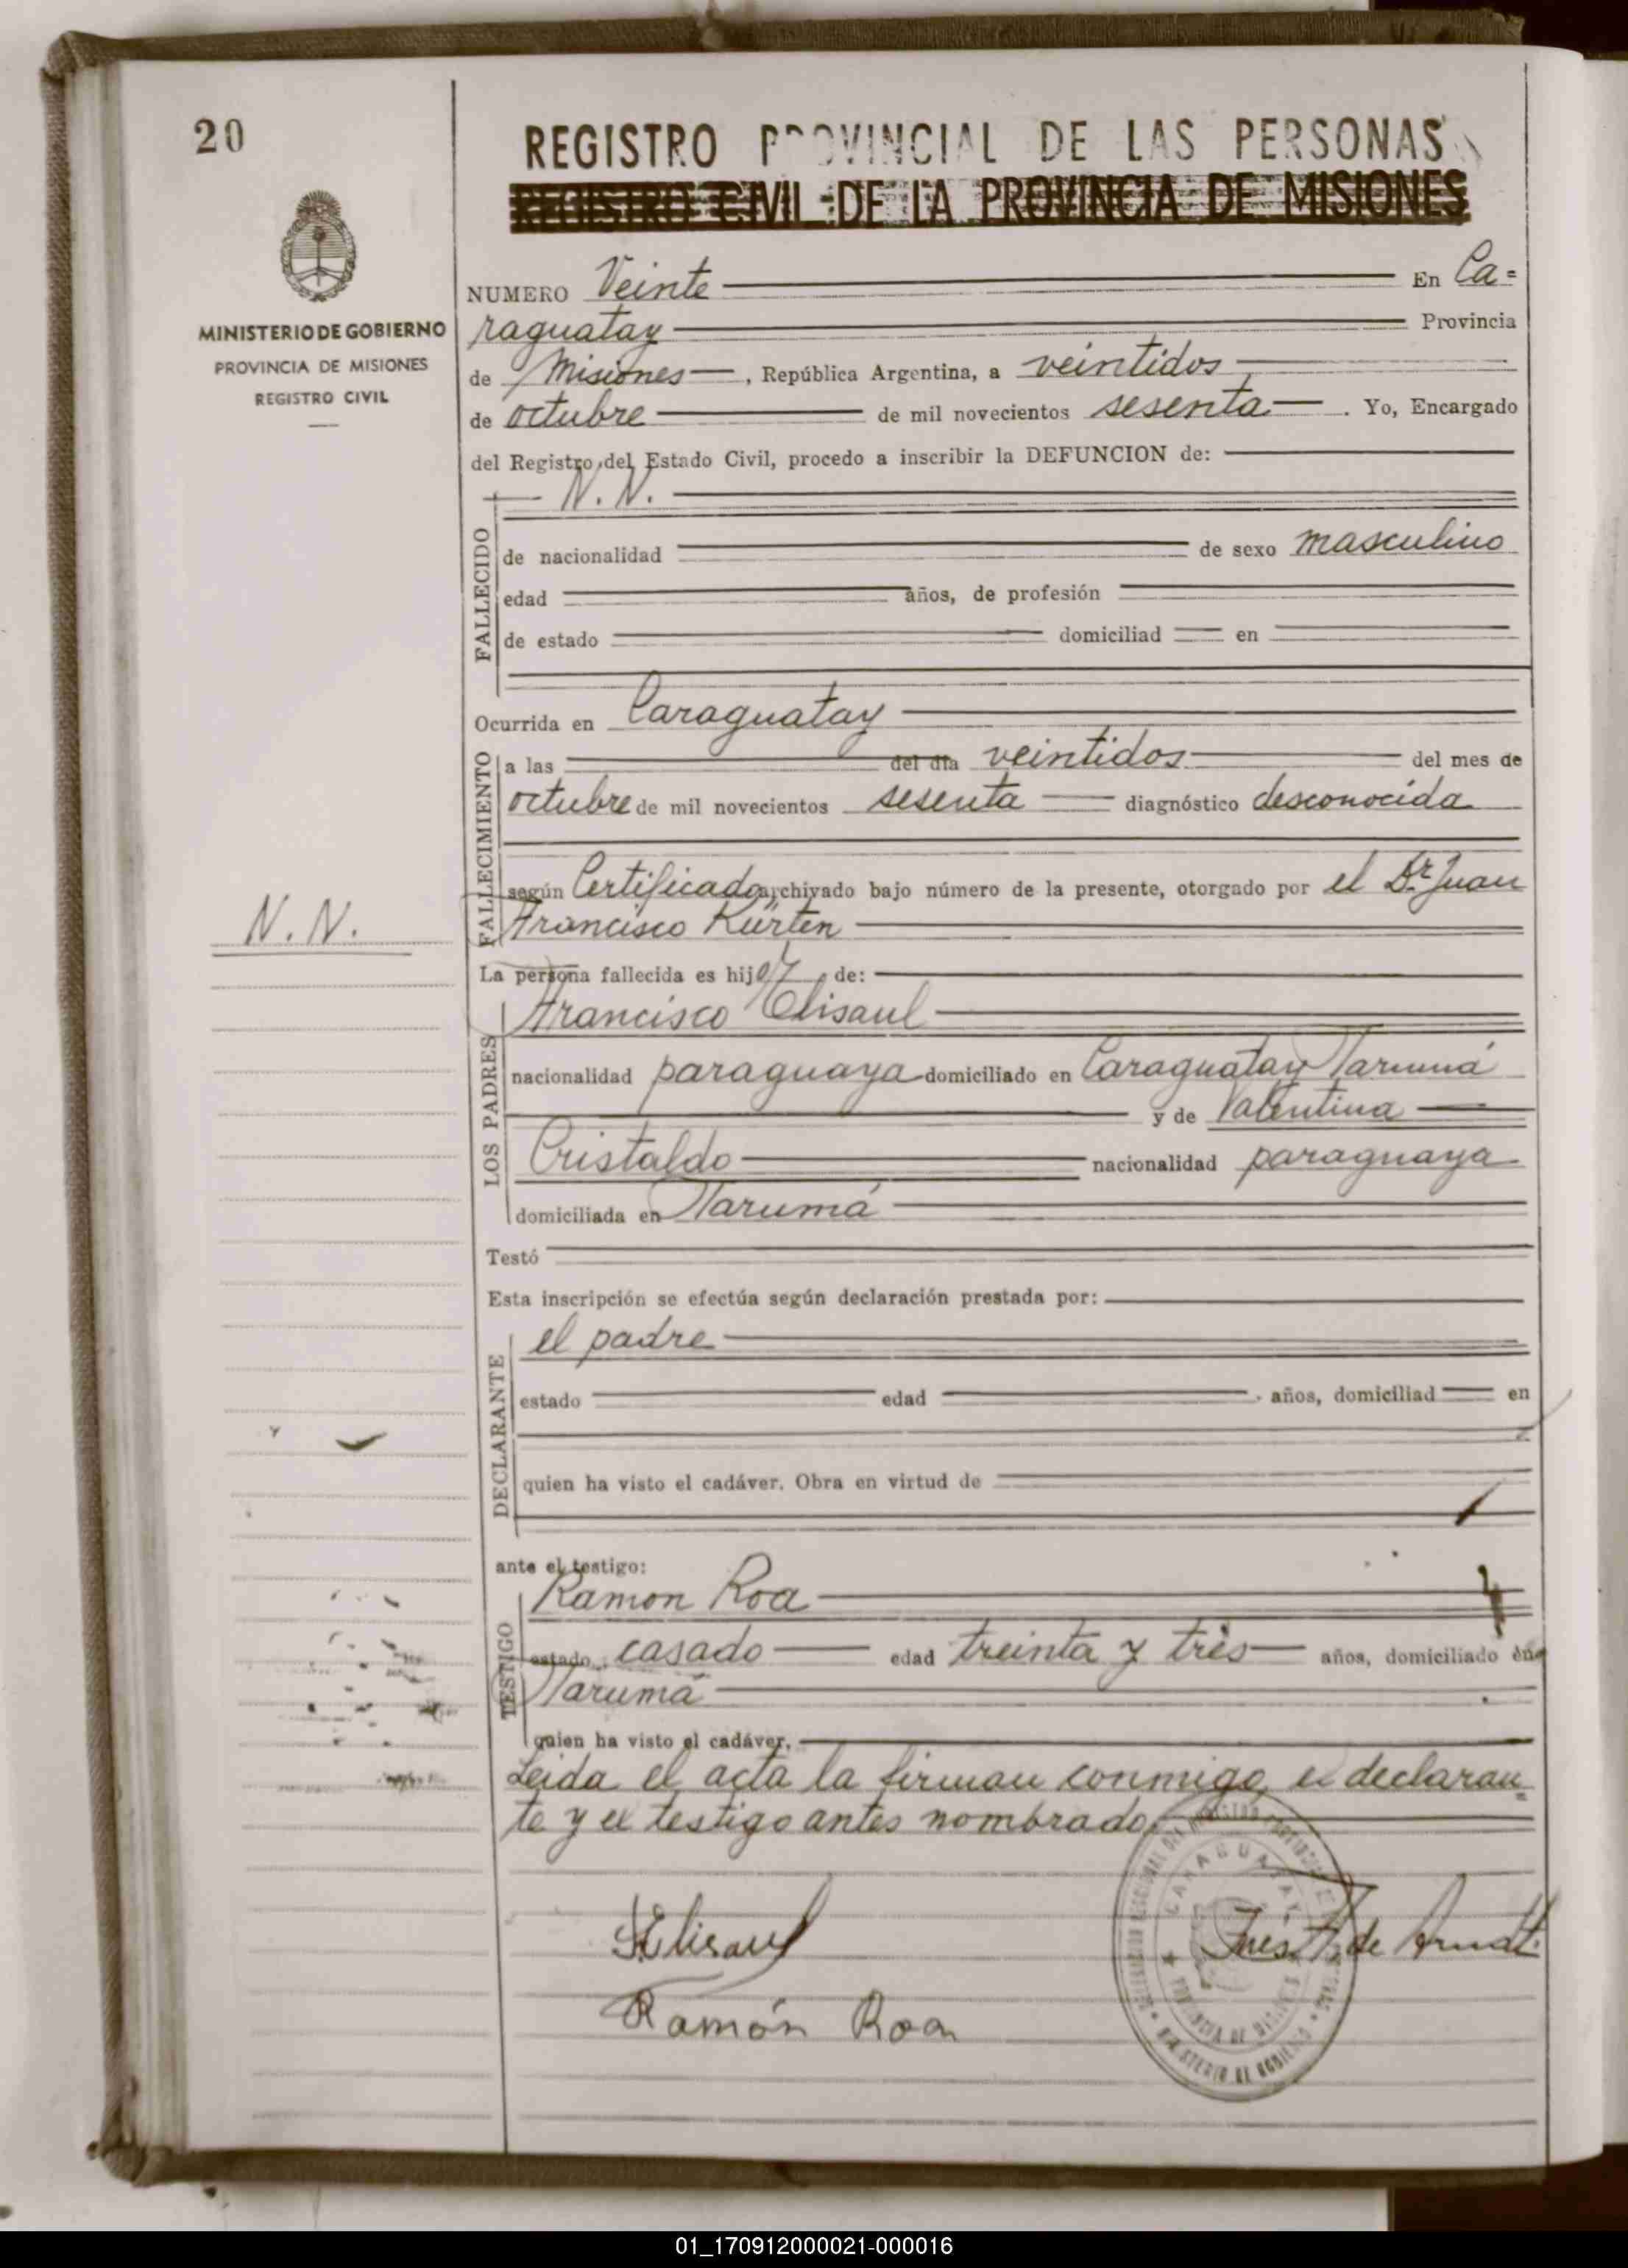 20
REGISTRO PROVINCIAL DE LAS PERSONAS
REGISTRO CIVIL DE LA PROVINCIA DE MISIONES
MINISTERIO DE GOBIERNO
PROVINCIA DE MISIONES
REGISTRO CIVIL
NUMERO Veinte En Ca=
raguatay Provincia
de Misiones, República Argentina, a veintidos
de octubre de mil novecientos sesenta. Yo, Encargado
del Registro del Estado Civil, procedo a inscribir la DEFUNCION de:
N. N.
FALLECIDO
de nacionalidad de sexo masculino
edad años, de profesión
de estado domiciliad en
Ocurrida en Caraguatay
FALLECIMIENTO
a las del día veintidos del mes de
octubre de mil novecientos sesenta diagnóstico desconocida
según Certificado archivado bajo número de la presente, otorgado por el Dr. Juan
Francisco Kürten
N. N.
La persona fallecida es hijo de:
LOS PADRES
Francisco Elisaul
nacionalidad paraguaya domiciliado en Caraguatay Tarumá
y de Valentina
Cristaldo nacionalidad paraguaya
domiciliada en Tarumá
Testó
Esta inscripción se efectúa según declaración prestada por:
DECLARANTE
el padre
estado edad años, domiciliad en
quien ha visto el cadáver. Obra en virtud de
ante el testigo:
TESTIGO
Ramon Roa
estado casado edad treinta y tres años, domiciliado en
Tarumá
quien ha visto el cadáver.
Leida el acta la firman conmigo, el declaran=
te y el testigo antes nombrado.
Elisaul
Ramón Roa
CARAGUATAY
PROVINCIA DE MISIONES
MINISTERIO DE GOBIERNO
01_170912000021-000016